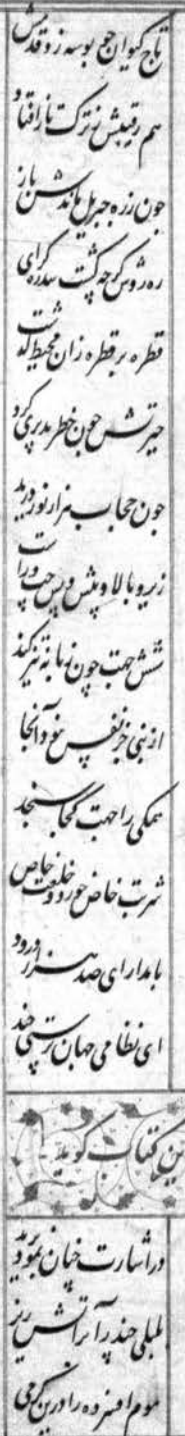 تاج کیوان چو بوسه زد قدمش
هم رفیقش ز ترکتاز افتاد
چون ز ره جبریل ماندش باز
ره روش گرچه پشت سدره گرای
قطره بر قطره زان محیط گذشت
حیرتش چون خطر پذیری کرد
چون حجاب هزار نور درید
زیر و بالا و پیش و پس چپ و راست
شش جهت چون زبانه تیز کند
از نبی جز نفس نبود آنجا
همگی را جهت کجا سنجد
شربت خاص خورد و خلعت خاص
با مدارای صد هزار درود
ای نظامی جهان پرستی چند
این کتاب گوید
در اشارت چنان نمود برید
بلبلی چند را بر آتش ریز
موم افسرده را درین گرمی